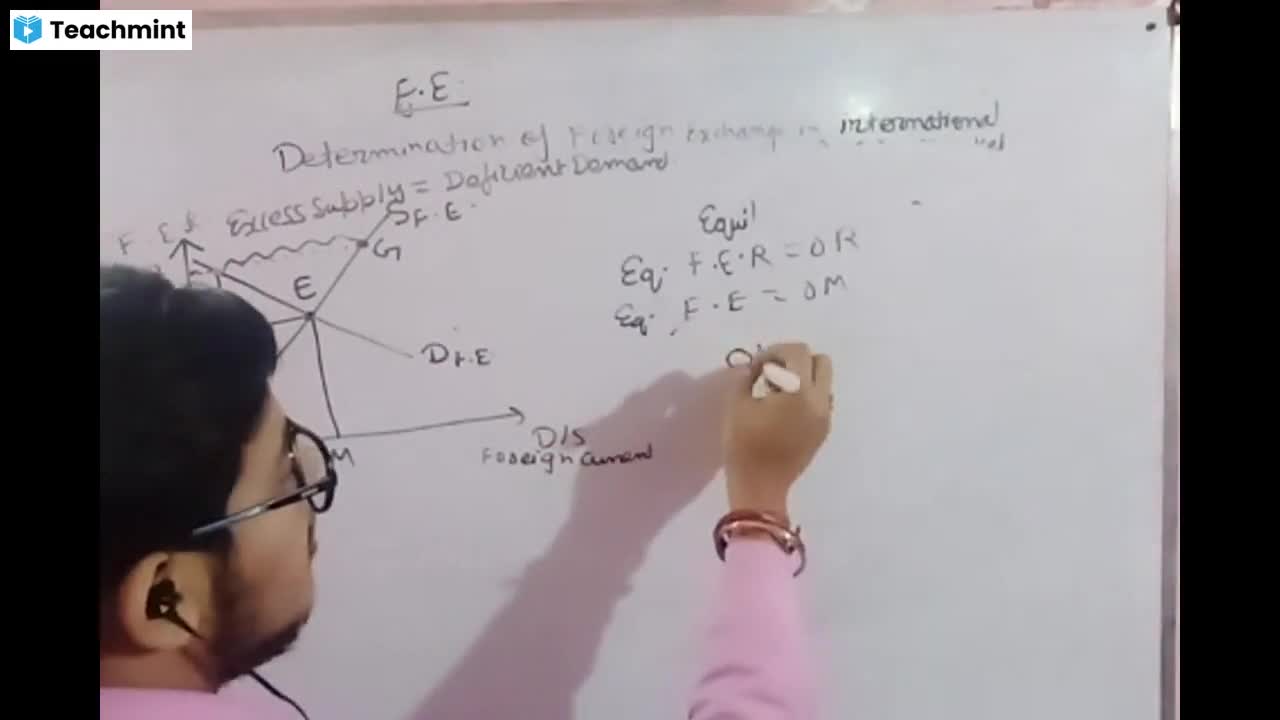 Teachmint
F.E.
Determination of Foreign Exchange in international
Excess Supply = Deficient Demand
SF.E.
G
E
DF.E
M
D/S
Foreign Current
Equil
Eq. F.E.R = OR
Eq. F.E = OM